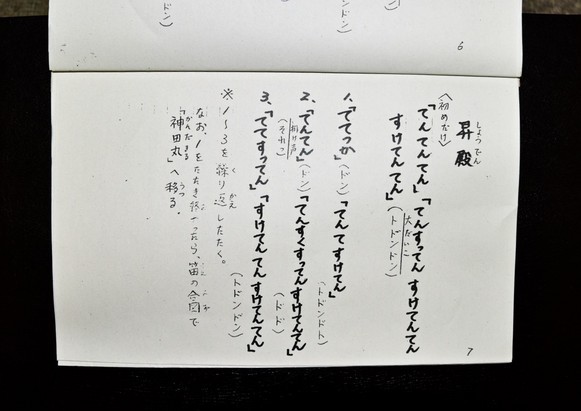 ドン)
6
昇殿
しょうでん
〈初めだけ〉
「てんてんてん」「てんすってん すけてんてん
すけてんてん」(トドンドン)
大だいこ
1、「ててつか」(ドン)「てんてすけてん」
(トドンドト)
2、「てんてん」(ドン)「てんすくすってんすけてんてん」
掛け声
(それっ)
(ドド)
3、「ててすってん」「すけてんてんすけてんてん」
(トドンドン)
※1〜3を繰り返したたく。
なお、1をたたき終ったら、笛の合図で
「神田丸」へ移る。
7